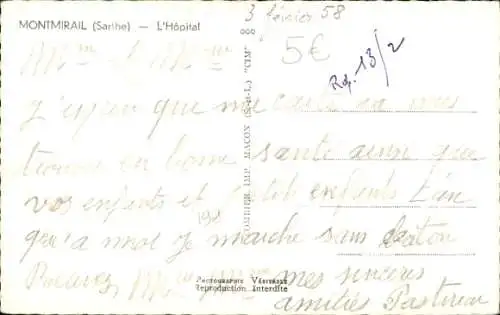 MONTMIRAIL (Sarthe) — L'Hôpital
3 février 58
5€
Rép. 13/2
J'espère que ma carte va vous
trouver en bonne santé ainsi que
vos enfants et petits enfants
qu'à moi je marche sans baton
Recevez mes sincères
amitiés
COMBIER IMP. MACON (S.-et-L.) "CIM"
Photographie Véritable
Reproduction Interdite